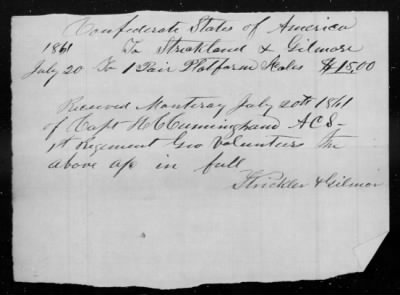 Confederate States of America
1861 To Strickland & Gilmore
July 20 To 1 Pair Platform Scales $15,00
Received Monteray July 20th 1861
of Capt H C Cunningham ACS-
1st Regiment Geo Volunteers the
above a/c in full
Strickler & Gilmor